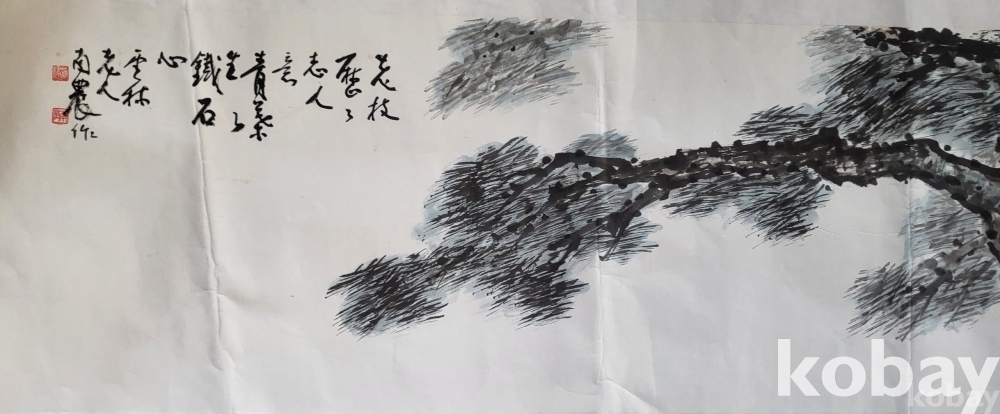 老枝
歷々
志人
意
青葉
々
鐵石
心
雲林
老人
南農作
kobay
kobay